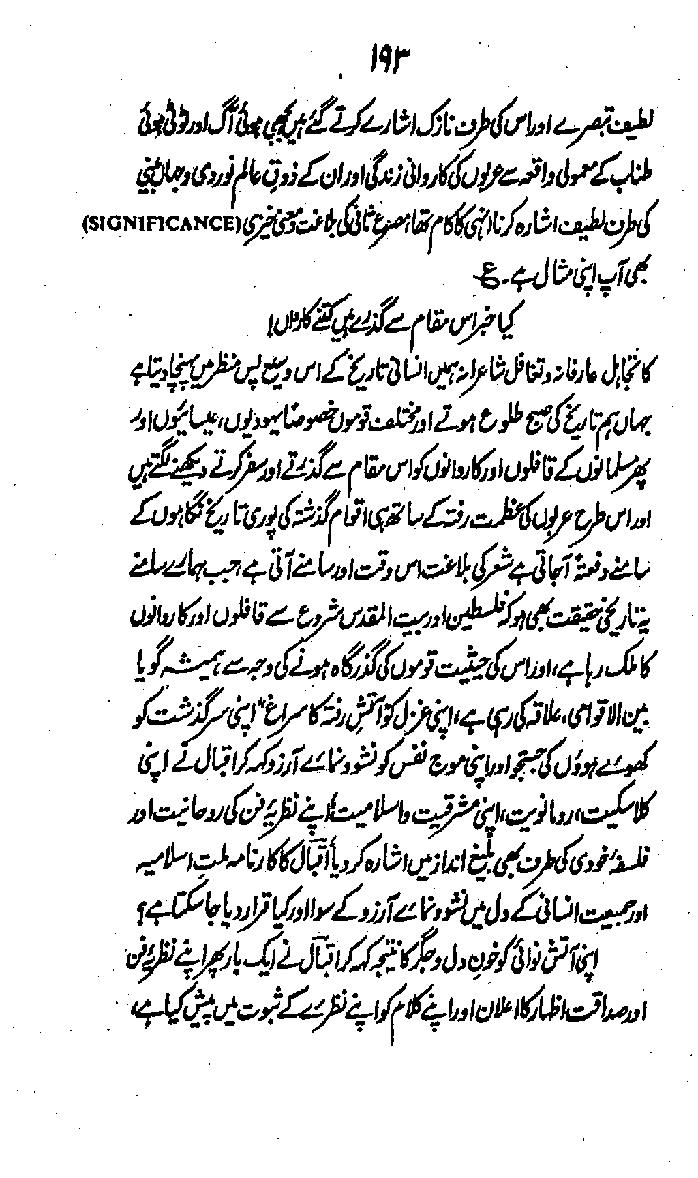 ۱۹۳
لطیف تبصرے اور اس کی طرف نازک اشارے کرتے گئے ہیں بجھی ہوئی آگ اور ٹوٹی ہوئی
طناب کے معمولی واقعہ سے عربوں کی کاروانی زندگی اور ان کے ذوقِ عالم نوردی و جہاں بینی
کی طرف لطیف اشارہ کرنا انہی کا کام تھا، مصرع ثانی کی بلاغت و معنی خیزی (SIGNIFICANCE)
بھی آپ اپنی مثال ہے۔ ع
کیا خبر اس مقام سے گذرے ہیں کتنے کارواں!
کا تجاہل عارفانہ و تغافل شاعرانہ ہمیں انسانی تاریخ کے اس وسیع پس منظر میں پہنچا دیتا ہے
جہاں ہم تاریخ کی صبح طلوع ہوتے اور مختلف قوموں خصوصاً یہودیوں، عیسائیوں اور
پھر مسلمانوں کے قافلوں اور کاروانوں کو اس مقام سے گذرتے اور سفر کرتے دیکھنے لگتے ہیں
اور اس طرح عربوں کی عظمت رفتہ کے ساتھ ہی اقوام گذشتہ کی پوری تاریخ نگاہوں کے
سامنے دفعۃً آجاتی ہے شعر کی بلاغت اس وقت اور سامنے آتی ہے، جب ہمارے سامنے
یہ تاریخی حقیقت بھی ہو کہ فلسطین اور بیت المقدس شروع سے قافلوں اور کاروانوں
کا ملک رہا ہے، اور اس کی حیثیت قوموں کی گذرگاہ ہونے کی وجہ سے ہمیشہ گویا
بین الاقوامی، علاقہ کی رہی ہے، اپنی غزل کو آتشِ رفتہ کا سراغ" اپنی سرگذشت کو
کھوئے ہوؤں کی جستجو اور اپنی موج نفس کو نشوونمائے آرزو کہہ کر اقبال نے اپنی
کلاسکیت، رومانویت، اپنی مشرقیت و اسلامیت، اپنے نظریۂ فن کی روحانیت اور
فلسفۂ خودی کی طرف بھی بلیغ انداز میں اشارہ کر دیا، اقبال کا کارنامہ ملتِ اسلامیہ
اور جمیعت انسانی کے دل میں نشوونمائے آرزو کے سوا اور کیا قرار دیا جا سکتا ہے؟
اپنی آتش نوائی کو خونِ دل و جگر کا نتیجہ کہہ کر اقبال نے ایک بار پھر اپنے نظریۂ فن
اور صداقت اظہار کا اعلان اور اپنے کلام کو اپنے نظریے کے ثبوت میں پیش کیا ہے،